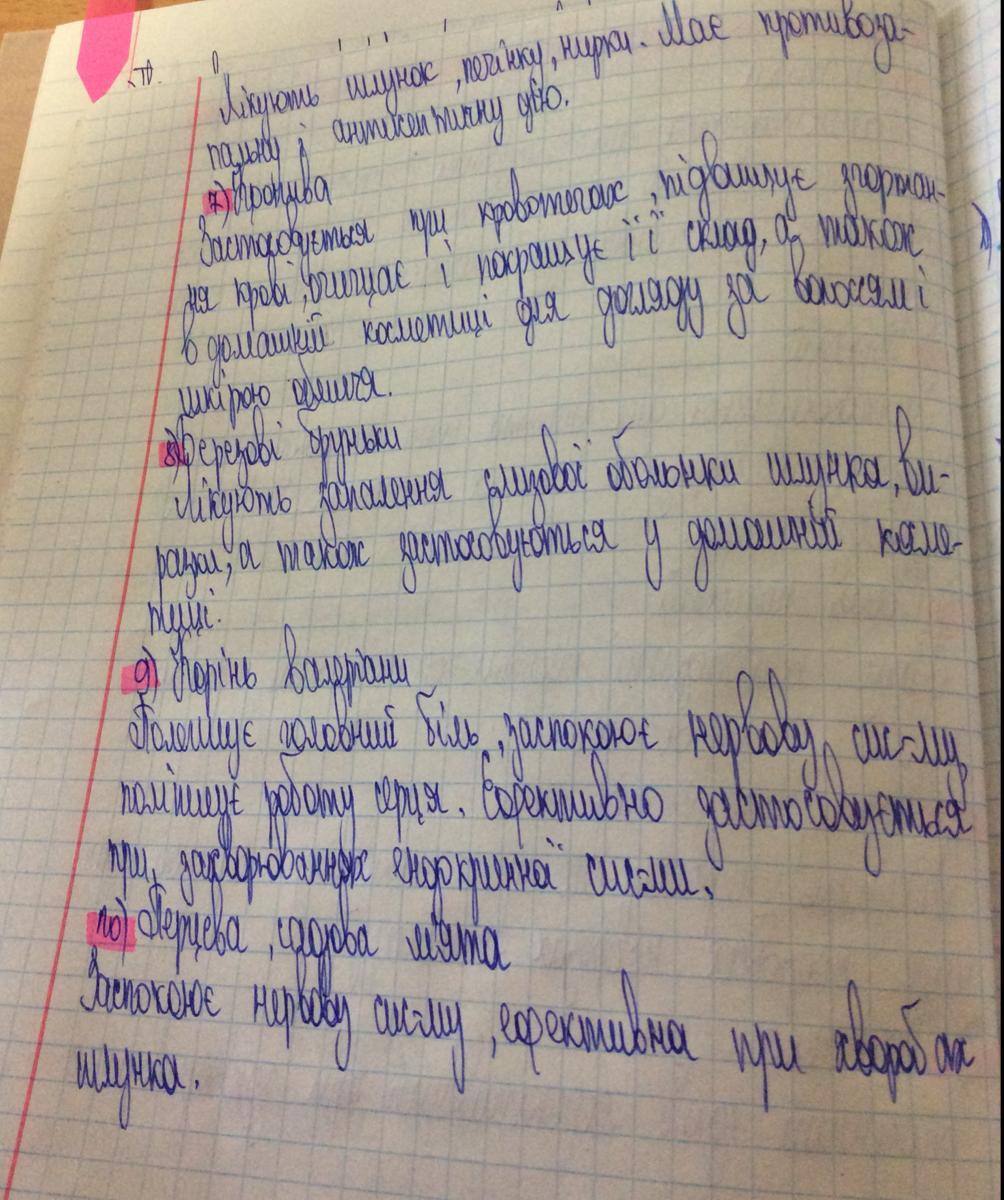 Лікують шлунок, печінку, нирки. Має протизоза-
пальну і антисептичну дію.
7) Кропива
Застосовується при кровотечах, підвищує згортан-
ня крові, очищає і покращує її склад, а також
в домашній косметиці для догляду за волоссям і
шкірою обличчя.
8) Березові бруньки
Лікують запалення слизової оболонки шлунка, ви-
разки, а також застосовуються у домашній косме-
тиці.
9) Корінь валеріани
Полегшує головний біль, заспокоює нервову сис-му,
поліпшує роботу серця. Ефективно застосовується
при захворюваннях ендокринної сис-ми.
10) Перцева, садова м'ята
Заспокоює нервову сис-му, ефективна при хворобах
шлунка.